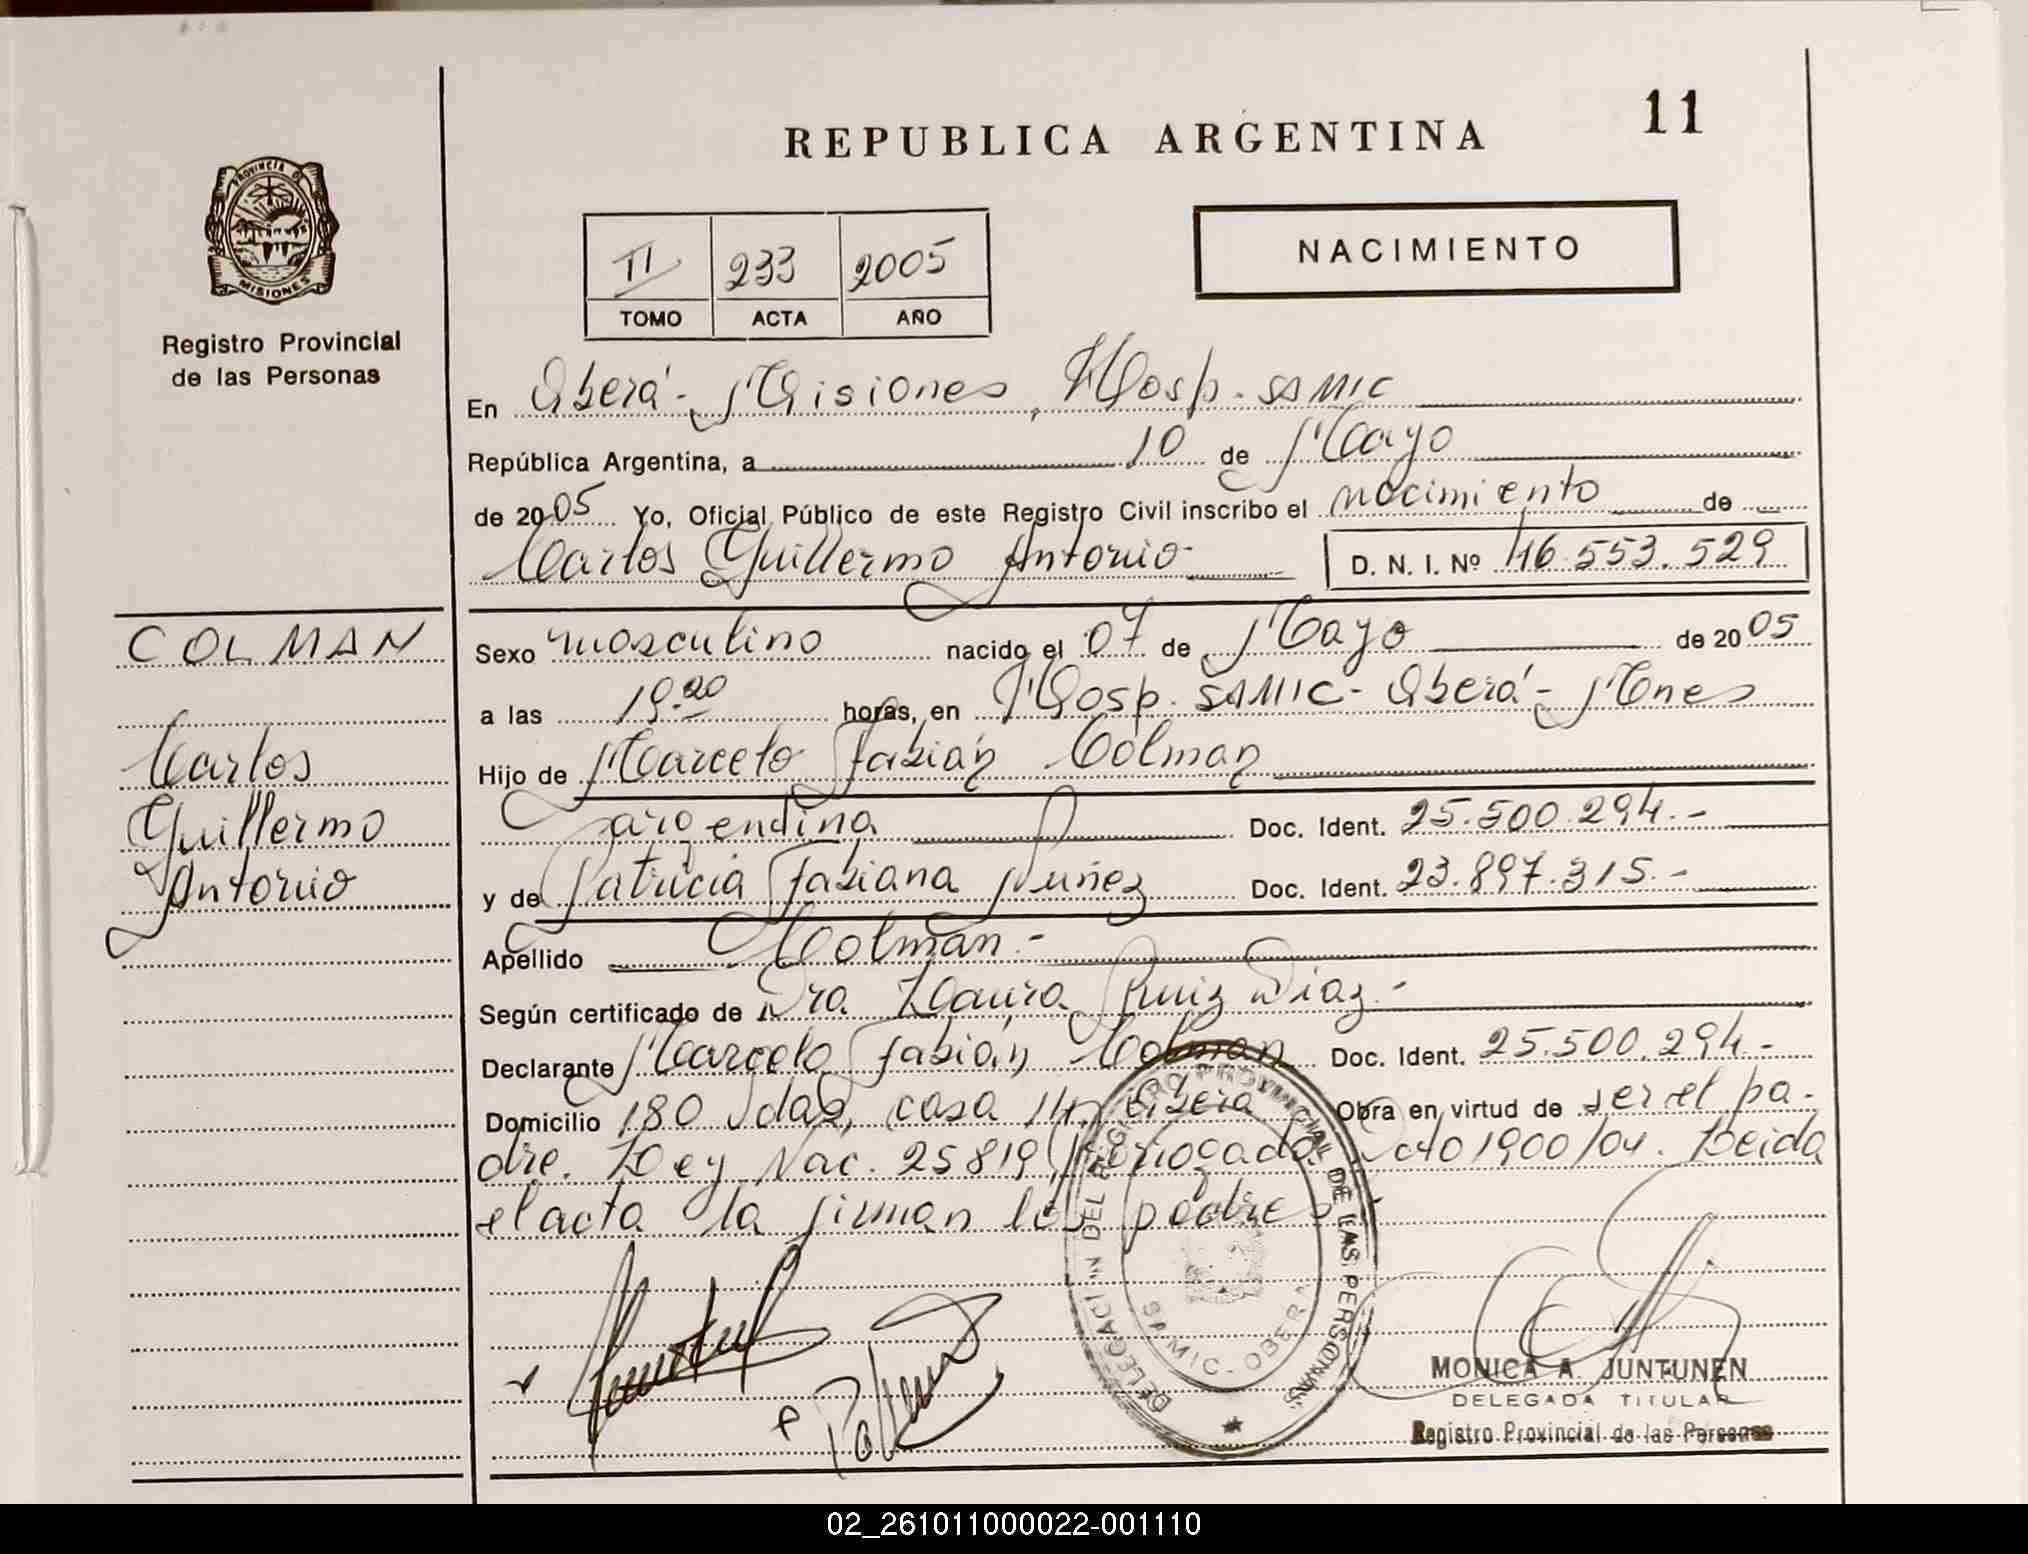 11
REPUBLICA ARGENTINA
PROVINCIA D
MISIONES
Registro Provincial
de las Personas
NACIMIENTO
II 233 2005
TOMO ACTA AÑO
En Oberá - Misiones, Hosp. SAMIC
República Argentina, a 10 de Mayo
de 2005 Yo, Oficial Público de este Registro Civil inscribo el nacimiento de
Carlos Guillermo Antonio D. N. I. Nº 46.553.529
COLMAN
Carlos
Guillermo
Antonio
Sexo masculino nacido el 07 de Mayo de 2005
a las 19.20 horas, en Hosp. SAMIC - Oberá - Mnes
Hijo de Marcelo Fabián Colman
argentina Doc. Ident. 25.500.294.-
y de Patricia Fabiana Nuñez Doc. Ident. 23.897.315.-
Apellido Colman.-
Según certificado de Dra Laura Ruiz Diaz.-
Declarante Marcelo Fabián Colman Doc. Ident. 25.500.294.-
Domicilio 180 Vdas, casa 14, Oberá Obra en virtud de ser el pa-
dre. Ley Nac. 25819 Prorrogada Dcto 1900/04. Leida
el acta la firman los padres
DELEGACION DEL REGISTRO PROVINCIAL DE LAS PERSONAS
SAMIC - OBERA
MONICA A. JUNTUNEN
DELEGADA TITULAR
Registro Provincial de las Personas
02_261011000022-001110